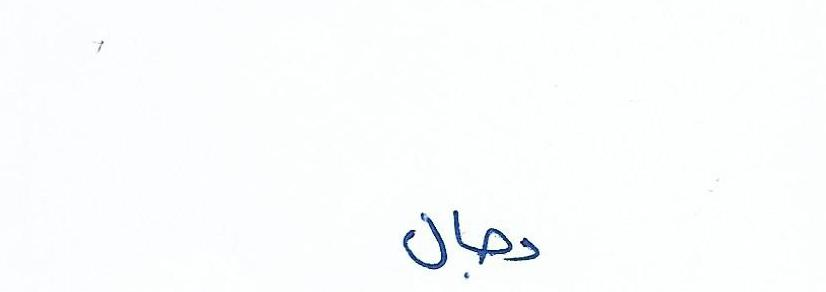 دجال